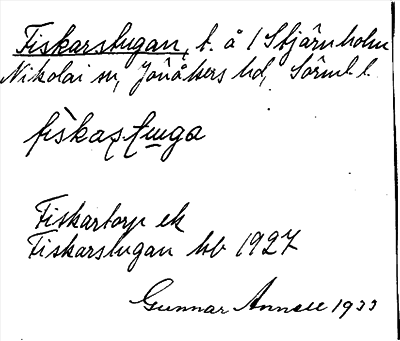 Fiskarstugan, t. å 1 Stjärnholm
Nikolai sn, Jönåkers hd, Sörml. l.
fìskaʂʈɯga
Fiskartorp ek
Fiskarstugan hb 1927
Gunnar Annell 1933